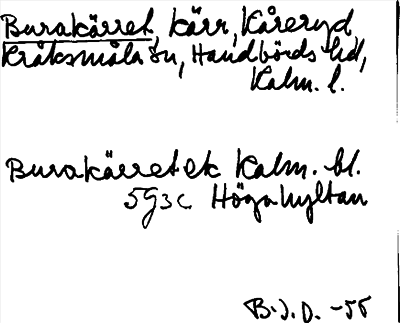 Burakärret, kärr, Kåreryd
Kråksmåla sn, Handbörds hd,
Kalm. l.
Burakärret ek Kalm. bl.
5G3c Högahyltan
B.J.D. -55